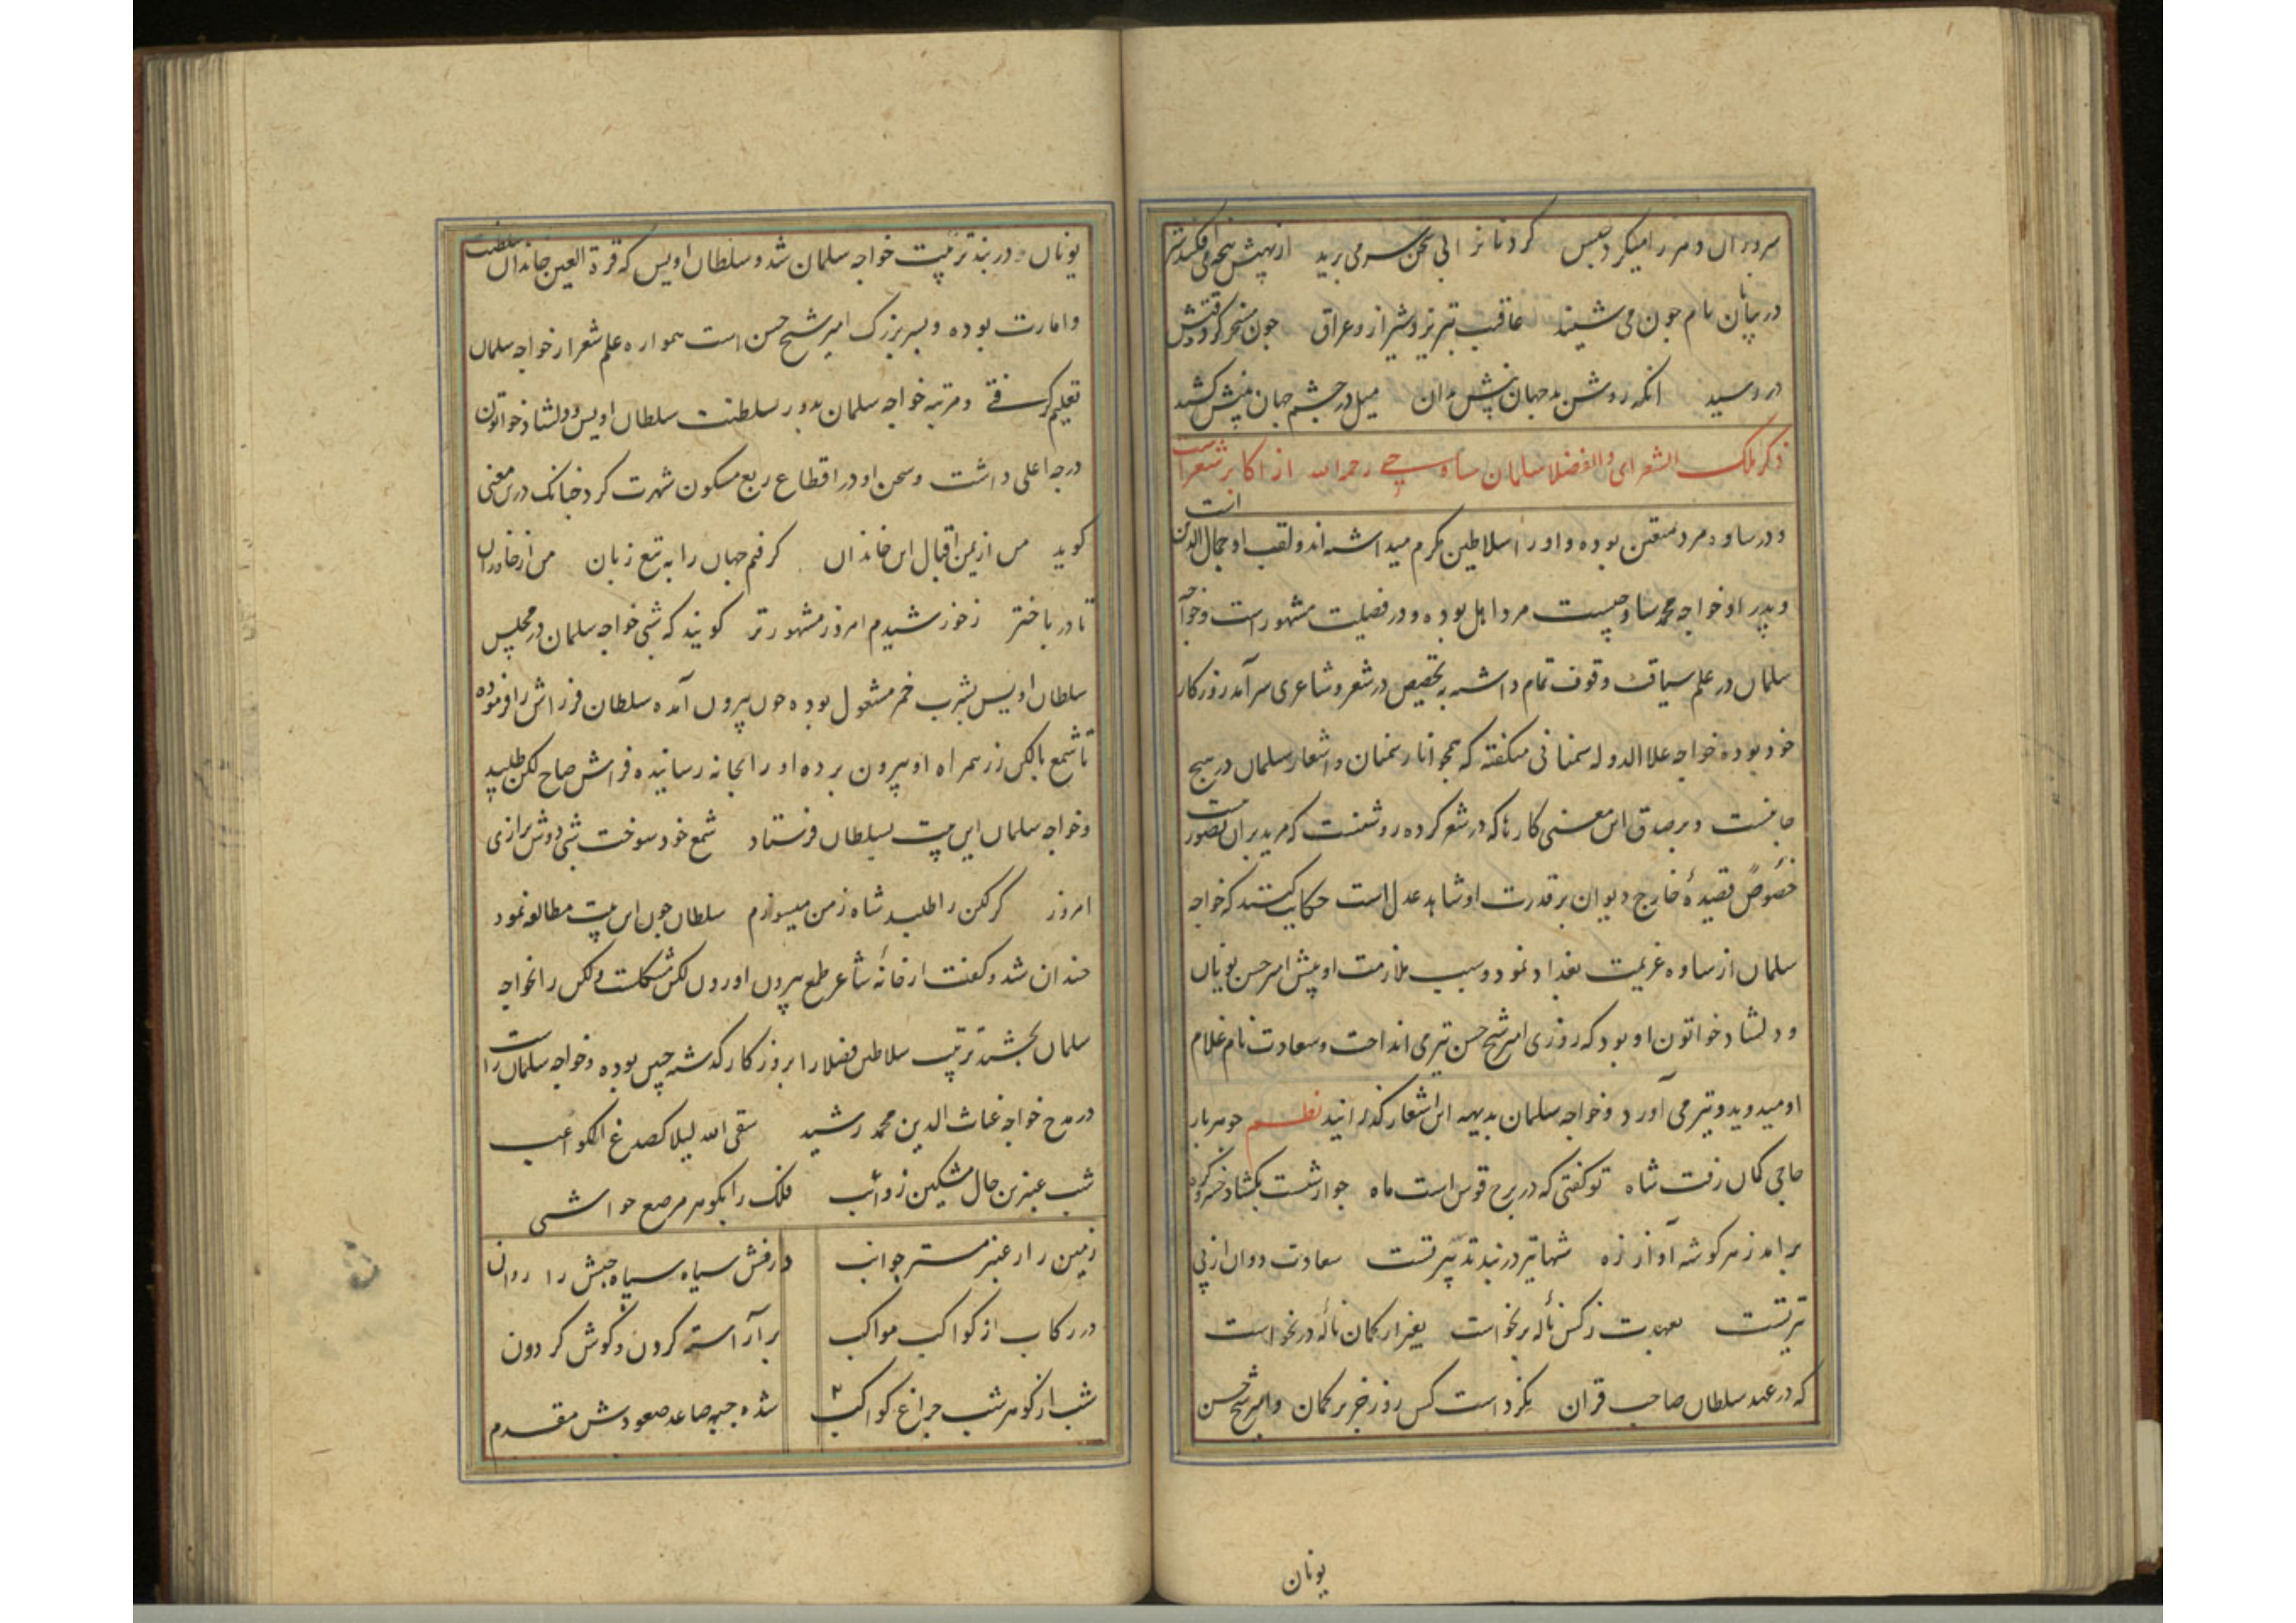 سروران و مر را میکرد حبس کردنانرا بی سخن سر می برید از نهیبش پنجه می افکند شیر
در بیابان نام جون می شیند عاقبت تبریز و شیراز و عراق جون مسخر کرد وقتش
در رسید انکه روشن بد جهان بینش بدان میل در جشم جهان بینش کشید
ذکر ملک الشعرای والفضلا سلمان ساوجی رحمه الله از اکابر شعراست
و در ساوه مرد متعین بوده و او را سلاطین مکرم میداشته اند و لقب او جمال الدین است
و پدر او خواجه محمد ساوجیست مرد اهل بوده و در فضیلت مشهور است و خواجه
سلمان در علم سیاقت وقوف تمام داشته به تخصیص در شعر و شاعری سرآمد روزکار
خود بوده خواجه علا الدوله سمنانی میکفته که همجو انار سمنان و اشعار سلمان در هیج
جا نیست و بر صدق این معنی کارها که در شعر کرده روشنست که مزید بران تصور نیست
خصوصً قصیدهٔ خارج دیوان بر قدرت او شاهد عدل است حکایت کنند که خواجه
سلمان از ساوه عزیمت بغداد نمود و سبب ملازمت او پیش امیر حسن نویان
و دلشاد خواتون او بود که روزی امیر شیخ حسن تیری انداخت و سعادت نام غلام
او میدوید و تیر می آورد و خواجه سلمان بدیهه این اشعار کذرانید نظم جو در بار
حاجی کمان رفت شاه تو کفتی که در برج قوس است ماه جو از شست بکشاد خسرو کره
برامد ز هر کوشه آواز زه شها تیر در بند تدبیر تست سعادت دوان از پی
تیر تست بعهدت ز کس نالهٔ برنخاست بغیر از کمان نالهٔ در نخواست
که در عهد سلطان صاحب قران نکرد است کس زور جز بر کمان و امیر شیخ حسن
یونان
یونان در بند تربیت خواجه سلمان شد و سلطان اویس که قرة العین خاندان سلطنت
و امارت بوده و پسر بزرک امیر شیخ حسن است همواره علم شعر از خواجه سلمان
تعلیم کرفتی و مرتبه خواجه سلمان بدور سلطنت سلطان اویس و دلشاد خواتون
درجه اعلی داشت و سخن او در اقطاع ربع مسکون شهرت کرد جنانک درین معنی
کوید من از یمن اقبال این خاندان کرفتم جهان را به تیغ زبان من از خاوران
تا در باختر ز خورشیدم امروز مشهورتر کویند که شبی خواجه سلمان در مجلس
سلطان اویس بشرب خمر مشغول بوده جون بیرون آمده سلطان فراش را فرموده
تا شمع با لکن زر همراه او بیرون برده او را بخانه رسانیده فراش صباح لکن طلبید
و خواجه سلمان این بیت بسلطان فرستاد شمع خود سوخت شبی دوش بزاری
امروز کر لکن را طلبد شاه ز من میسوزم سلطان جون این بیت مطالعه نمود
خندان شد و کفت از خانهٔ شاعر طمع بیرون اوردن لکن مشکلست و لکن را بخواجه
سلمان بخشید تربیت سلاطین فضلا را بروزکار کذشته جنین بوده و خواجه سلمان راست
در مدح خواجه غیاث الدین محمد رشید سقی الله لیلا کصدغ الکواعب
شب عنبرین خال مشکین ذوائب فلک را بکوهر مرصع حواشی
زمین را ز عنبر مستر جوانب درفش سیاه سپاه حبش را روان
در رکاب از کواکب مواکب بر آراسته کردن و کوش کردون
شب از کوهر شب جراغ کواکب شده جبهه صاعد صعودش مقدم